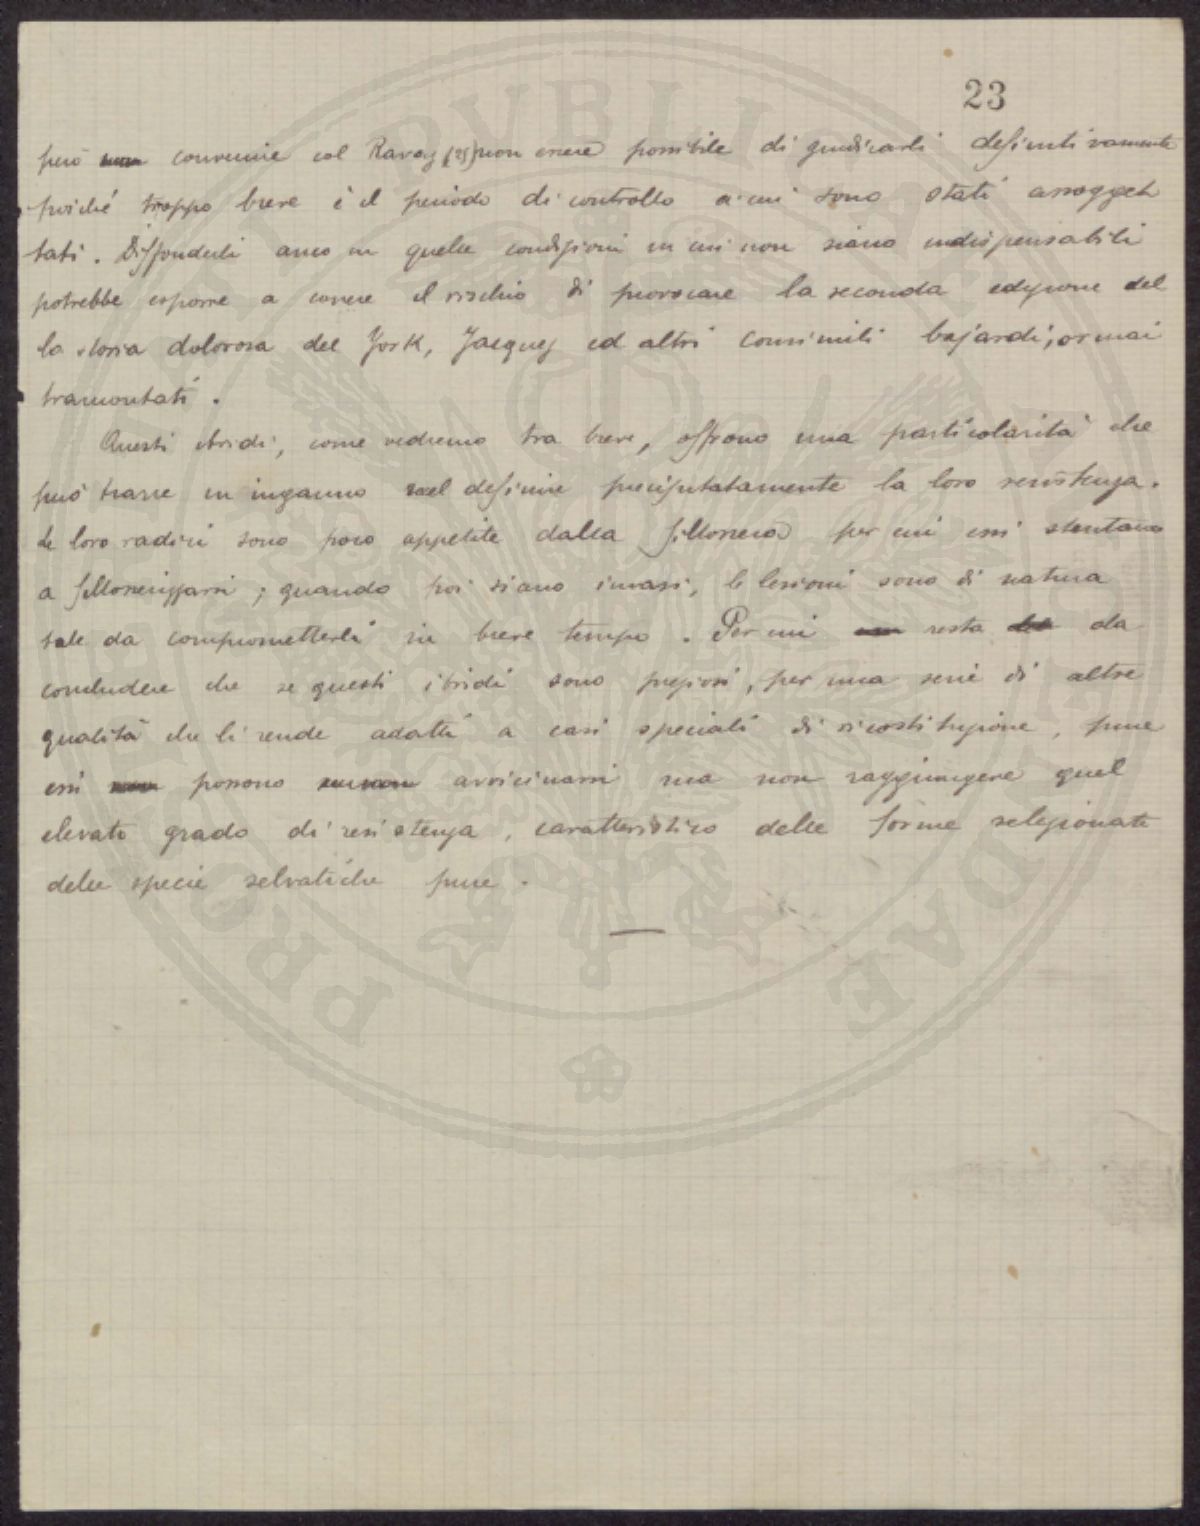 23
però ~~non~~ convenire col Ravaz (25) non essere possibile di giudicarli definitivamente
poiché troppo breve è il periodo di controllo a cui sono stati assoggett
tati. Diffonderli anco in quelle condizioni in cui non siano indispensabili
potrebbe esporre a correre il rischio di provocare la seconda edizione del
la storia dolorosa del York, Jacquez ed altri consimili bastardi, ormai
tramontati.
Questi ibridi, come vedremo tra breve, offrono una particolarità che
può trarre in inganno nel definire precipitatamente la loro resistenza.
Le loro radici sono poco appetite dalla fillossera per cui essi stentano
a fillosserizzarsi; quando poi siano invasi, le lesioni sono di natura
tale da comprometterli in breve tempo. Per cui resta da
concludere che se questi ibridi sono preziosi, per una serie di altre
qualità che li rende adatti a casi speciali di ricostituzione, pure
essi possono avvicinarsi ma non raggiungere quel
elevato grado di resistenza, caratteristico delle forme selezionate
delle specie selvatiche pure.
PRO PVBLICAE